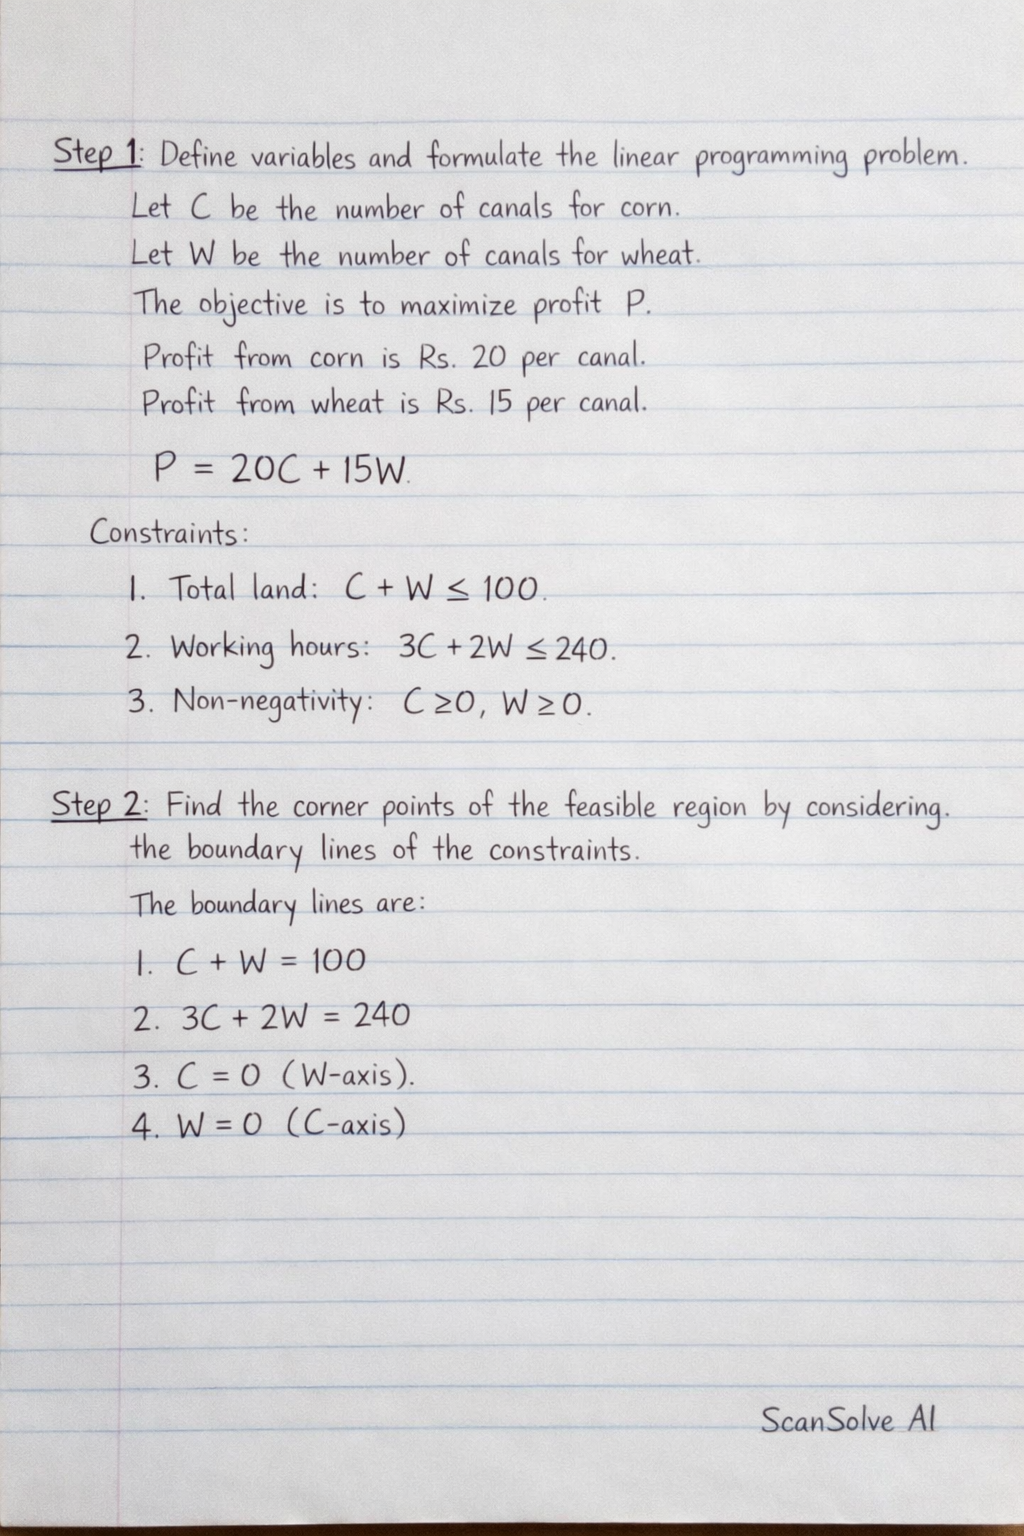 Step 1: Define variables and formulate the linear programming problem.
Let C be the number of canals for corn.
Let W be the number of canals for wheat.
The objective is to maximize profit P.
Profit from corn is Rs. 20 per canal.
Profit from wheat is Rs. 15 per canal.
P = 20C + 15W.
Constraints:
1. Total land: C + W ≤ 100.
2. Working hours: 3C + 2W ≤ 240.
3. Non-negativity: C ≥0, W ≥0.
Step 2: Find the corner points of the feasible region by considering.
the boundary lines of the constraints.
The boundary lines are:
1. C + W = 100
2. 3C + 2W = 240
3. C = 0 (W-axis).
4. W = 0 (C-axis)
ScanSolve AI